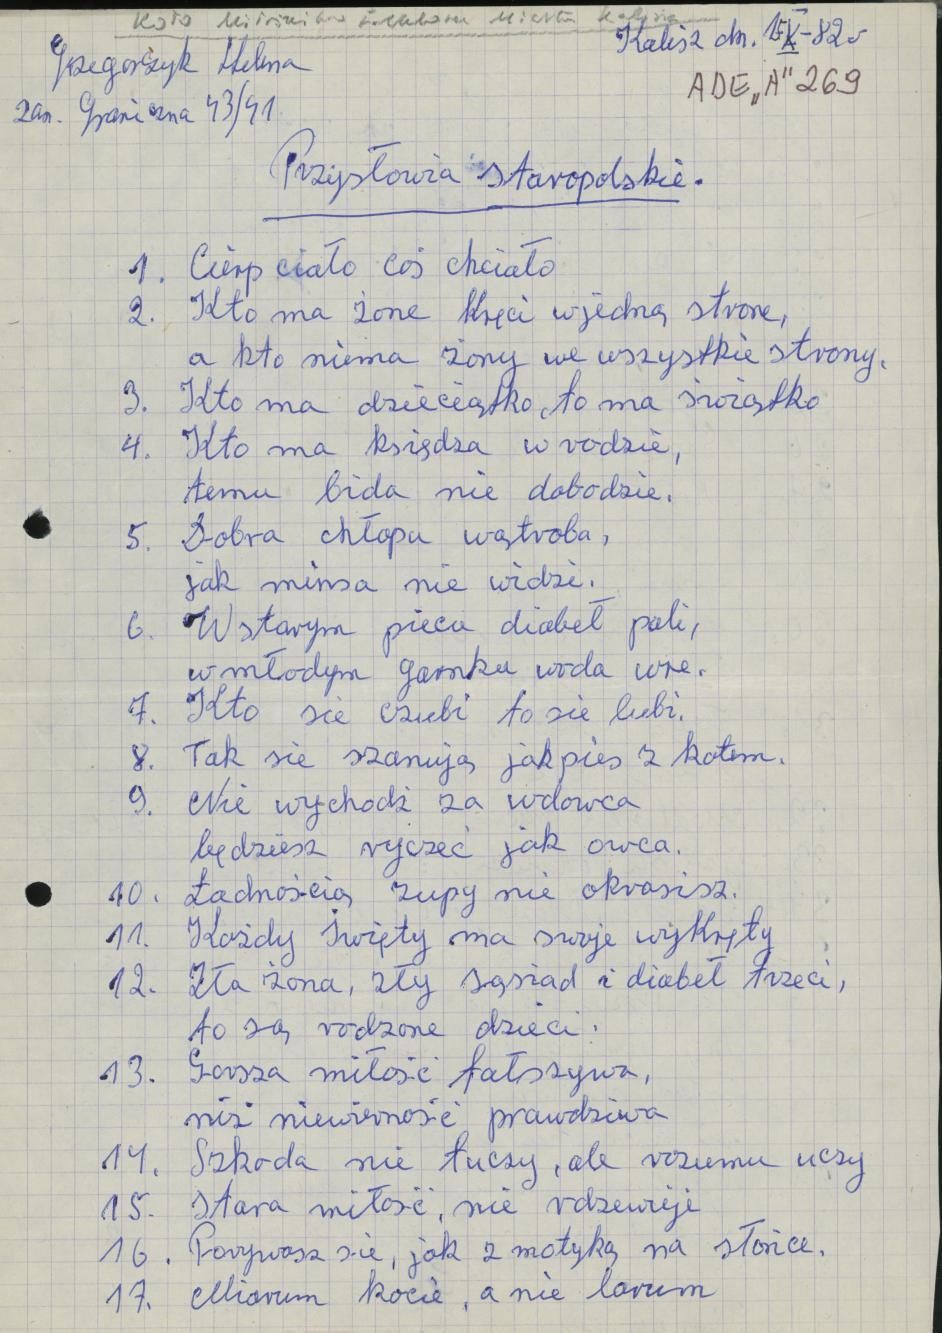 Koło Miłośników Miasta Kalisza
Kalisz dn. IX-82 r
Grzegorzyk Helena
ADE „A" 269
zam. Graniczna 43/41
Przysłowia staropolskie.
1. Cierp ciało coś chciało
2. Kto ma żone kręci wjedną strone,
a kto niema żony we wszystkie strony.
3. Kto ma dzieciątko, to ma świątko
4. Kto ma księdza w rodzie,
temu bida nie dobodzie.
5. Dobra chłopu wątroba,
jak minsa nie widzi.
6. W starym piecu diabeł pali,
w młodym garnku woda wre.
7. Kto sie czubi to sie lubi.
8. Tak sie szanują jak pies z kotem.
9. Nie wychodź za wdowca
będziesz ryczeć jak owca.
10. Ładnością zupy nie okrasisz.
11. Każdy święty ma swoje wykręty
12. Zła żona, zły sąsiad i diabeł trzeci,
to są rodzone dzieci.
13. Gorsza miłość fałszywa,
niż niewierność prawdziwa
14. Szkoda nie tuczy, ale rozumu uczy
15. Stara miłość, nie rdzewieje
16. Porywasz sie, jak z motyką na słońce.
17. Miarum kocie, a nie larum